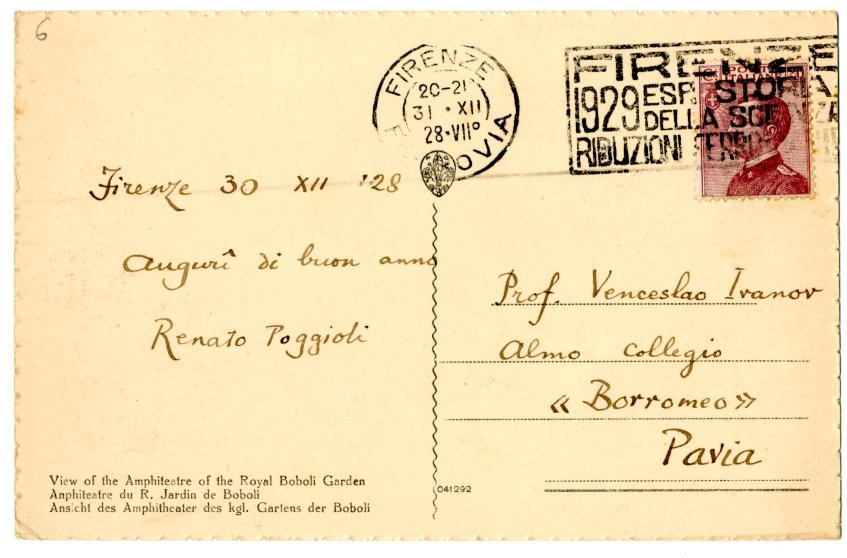 6
FIRENZE
20-21
31 · XII
28·VIIº
OVIA
FIRENZE
1929 ESP. STORIA
DELLA SCIENZA
RIDUZIONI FERROV
Firenze 30 XII '28
Auguri di buon anno
Renato Poggioli
Prof. Venceslao Ivanov
Almo Collegio
« Borromeo »
Pavia
View of the Amphiteatre of the Royal Boboli Garden
Anphiteatre du R. Jardin de Boboli
Ansicht des Amphitheater des kgl. Gartens der Boboli
041292